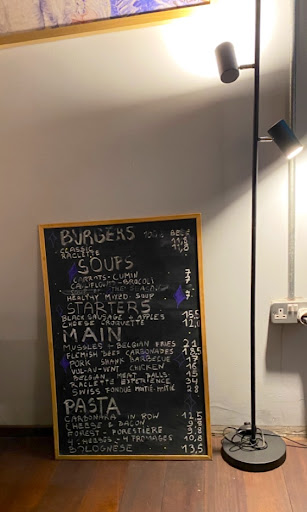 BURGERS 100% BEEF
CLASSIC
RACLETTE
SOUPS
CARROTS - CUMIN 7
CAULIFLOWER - BROCOLI 7
HEALTHY MIXED SOUP 7
STARTERS
BLACK SAUSAGE & APPLES 15,5
CHEESE CROQUETTE 12,0
MAIN
MUSSLES - BELGIAN FRIES 21
FLEMISH BEEF CARBONADES 18,5
PORK SHANK BARBECUE 17
VUL-AU-VENT CHICKEN 16
BELGIAN MEAT BALLS 15
RACLETTE EXPERIENCE 34
SWISS FONDUE MOITIÉ-MOITIÉ 28
PASTA
CARBONARA IN BOW 12,5
CHEESE & BACON 9,8
FOREST - FORESTIERE
4 CHEESES - 4 FROMAGES 10,8
BOLOGNESE 13,5